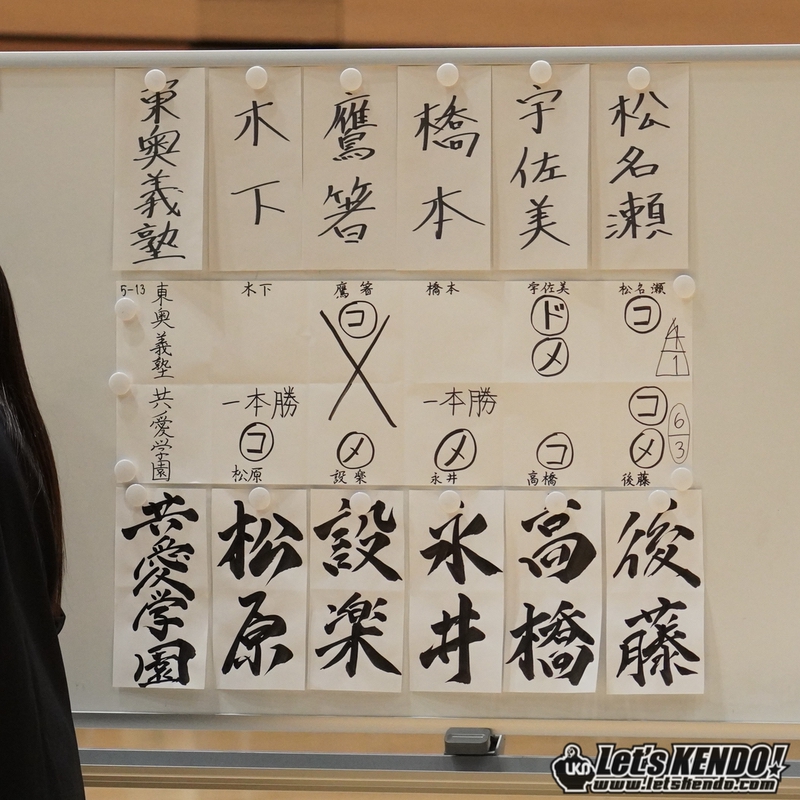 東奥義塾 木下 鷹箸 橋本 宇佐美 松名瀬
5-13 東奥義塾 木下 鷹箸 橋本 宇佐美 松名瀬
コ ド コ
メ
4
1
共愛学園 一本勝 一本勝 コ
コ メ メ コ メ
6
3
松原 設楽 永井 高橋 後藤
共愛学園 松原 設楽 永井 高橋 後藤
LKD Let's KENDO!
www.letskendo.com